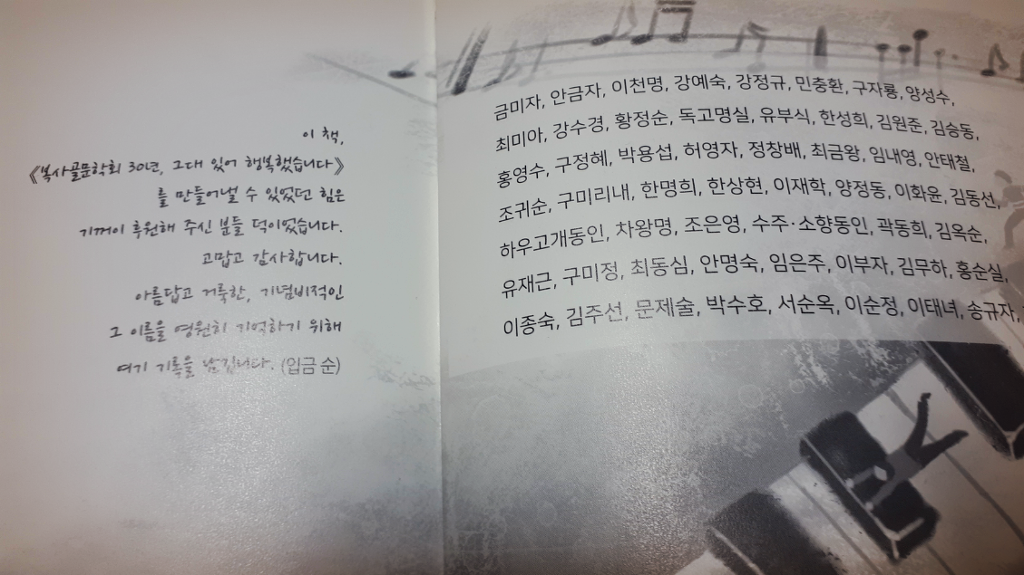 이 책,
《복사골문학회 30년, 그대 있어 행복했습니다》
를 만들어낼 수 있었던 힘은
기꺼이 후원해 주신 분들 덕이었습니다.
고맙고 감사합니다.
아름답고 거룩한, 기념비적인
그 이름을 영원히 기억하기 위해
여기 기록을 남깁니다. (입금 순)
금미자, 안금자, 이천명, 강예숙, 강정규, 민충환, 구자룡, 양성수,
최미아, 강수경, 황정순, 독고명실, 유부식, 한성희, 김원준, 김승동,
홍영수, 구정혜, 박용섭, 허영자, 정창배, 최금왕, 임내영, 안태철,
조귀순, 구미리내, 한명희, 한상현, 이재학, 양정동, 이화윤, 김동선,
하우고개동인, 차왕명, 조은영, 수주·소향동인, 곽동희, 김옥순,
유재근, 구미정, 최동심, 안명숙, 임은주, 이부자, 김무하, 홍순실,
이종숙, 김주선, 문제술, 박수호, 서순옥, 이순정, 이태녀, 송규자,